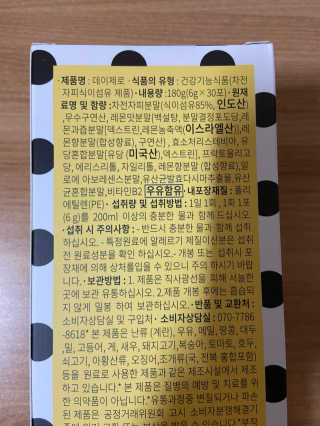 ·제품명: 데이제로 ·식품의 유형: 건강기능식품(차전
자피식이섬유 제품) ·내용량: 180g(6g×30포) ·원재
료명 및 함량: 차전자피분말(식이섬유85%, 인도산)
,무수구연산, 레몬맛분말(백설탕, 분말결정포도당,레
몬과즙분말[덱스트린,레몬농축액(이스라엘산)],레
몬향분말(합성향료), 구연산}, 효소처리스테비아, 유
당혼합분말[유당(미국산),덱스트린], 프락토올리고
당, 에리스리톨, 자일리톨, 레몬향분말(합성향료),알
로에 아보레센스분말,유산균발효다시마추출물,유산
균혼합분말,비타민B2 우유함유 ·내포장재질: 폴리
에틸렌(PE) ·섭취량 및 섭취방법: 1일 1회, 1회 1포
(6g)를 200ml 이상의 충분한 물과 함께 드십시오.
·섭취 시 주의사항: ·반드시 충분한 물과 함께 섭취
하십시오. ·특정원료에 알레르기 체질이신분은 섭취
전 원료성분을 확인 하십시오. ·개봉 또는 섭취시 포
장재에 의해 상처를입을 수 있으니 주의 하시기 바랍
니다. ·보관방법: 1. 제품은 직사광선을 피해 서늘한
곳에 보관 유통하십시오. 2.제품 개봉 후에는 흡습되
지 않게 밀봉 하여 보관하십시오. ·반품 및 교환처:
소비자상담실 및 구입처 ·소비자상담실: 070-7786
-8618* 본 제품은 난류(계란), 우유, 메밀, 땅콩, 대두
,밀, 고등어, 게, 새우, 돼지고기, 복숭아, 토마토, 호두,
쇠고기, 아황산류, 오징어, 조개류(굴, 전복 홍합포함)
등을 원료로 사용한 제품과 같은 제조시설에서 제조
하고 있습니다.* 본 제품은 질병의 예방 및 치료를 위
한 의약품이 아닙니다.*유통과정중 변질되거나 파손
된 제품은 공정거래위원회 고시 소비자분쟁해결기